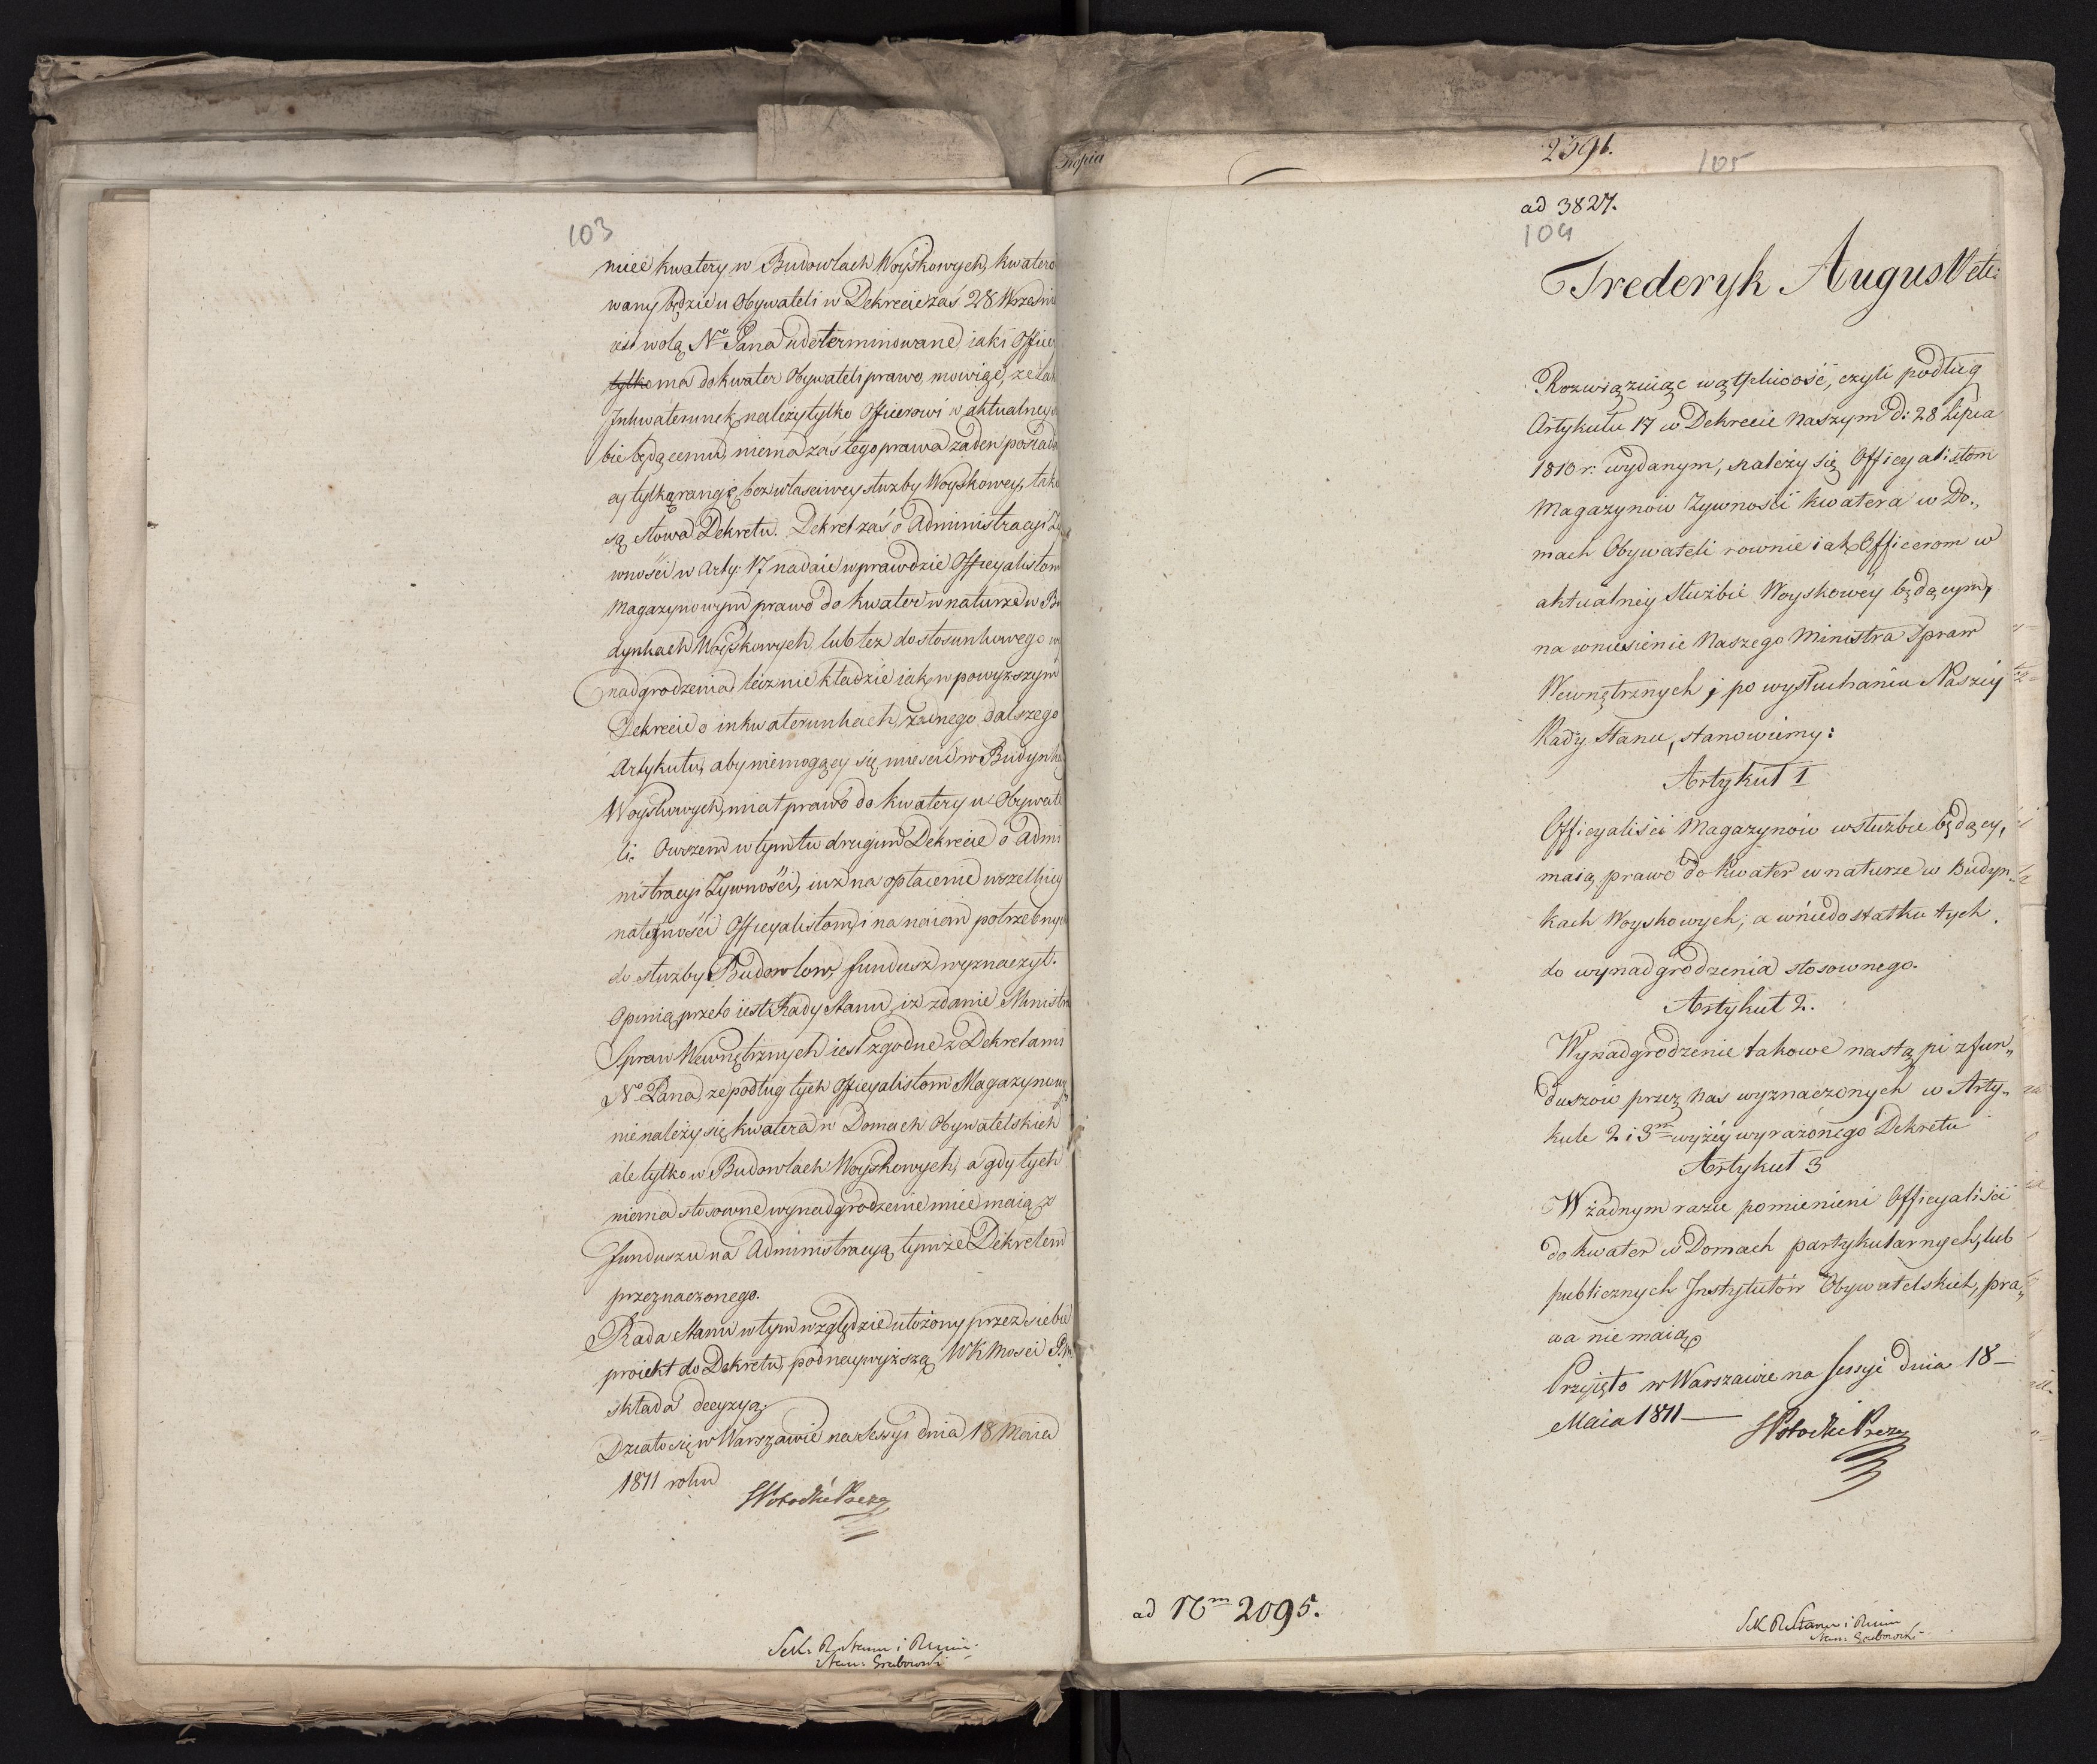 103
mieć kwatery w Budowlach Woyskowych, kwatero
wany będzie u Obywateli w Dekrecie zaś 28 Wrzesnia
iest wolą No Pana udeterminowane, iaki Officer
tylko ma do kwater Obywateli prawo, mowiąc, że tak
Inkwaterunek należy tylko Officerowi w aktualney
bie będącemu, niema zaś tego prawa żaden posiada
cy tylko rangię bez własciwey służby Woyskowey, takie
są słowa Dekretu. Dekret zaś o Administracyi Ży
wności w Arty: 17 nadaie wprawdzie Officyalistom
Magazynowym prawo do kwater w naturze w Bu
dynkach Woyskowych, lub też do stosunkowego wy
nadgrodzenia, lecz nie kładzie iak w powyższym
Dekrecie o inkwaterunkach, żadnego dalszego
Artykułu, aby niemogący się mieścić w Budynka
Woyskowych, miał prawo do kwatery u Obywate
li. Owszem w tym tu drugim Dekrecie o Admi
nistracyi Żywności, iuż na opłacenie wszelkiey
należności Officyalistom i na naiem potrzebnych
do służby Budowlow, fundusz wyznaczył.
Opinią przeto iest Rady Stanu, iż zdanie Ministra
Spraw Wewnętrznych iest zgodne z Dekretami
No Pana, że podług tych Officyalistom Magazynowym
nie należy się kwatera w Domach Obywatelskich
ale tylko w Budowlach Woyskowych, a gdy tych
niema stosowne wynadgrodzenie mieć maią z
funduszu na Administracyą tymże Dekretem
przeznaczonego.
Rada Stanu w tym względzie ułożony przez siebie
proiekt do Dekretu, pod naywyższą WKMości P. M.
składa decyzyą.
Działo się w Warszawie na Sessyi dnia 18 Maia
1811 roku
S Potocki Prezes
Sek: R. Stanu i R. Min:
Stan: Grabowski
Kopia
2391.
105
ad 3827.
104
Frederyk August etc:
Rozwiązuiąc wątpliwość, czyli podług
Artykułu 17 w Dekrecie Naszym d: 28 Lipca
1810 r: wydanym, należy się Officyalistom
Magazynow Żywności kwatera w Do„
mach Obywateli rownie iak Officerom w
aktualney służbie Woyskowey będącym,
na wniesienie Naszego Ministra Spraw
Wewnętrznych i po wysłuchaniu Naszey
Rady Stanu, stanowimy:
Artykuł 1
Officyaliści Magazynow w służbie będący,
maią prawo do kwater w naturze w Budyn„
kach Woyskowych, a w niedostatku tych
do wynadgrodzenia stosownego.
Artykuł 2.
Wynadgrodzenie takowe nastąpi z fun„
duszow przez Nas wyznaczonych w Arty„
kule 2 i 3m wyżéy wyrażonego Dekretu
Artykuł 3
W żadnym razie pomienieni Officyaliści
do kwater w Domach partykularnych, lub
publicznych Instytutów Obywatelskich, pra„
wa nie maią.
Przyięto w Warszawie na Sessyi dnia 18 —
Maia 1811 — S Potocki Prezes
ad Num 2095.
Sek R Stanu i R Min
Stan: Grabowski